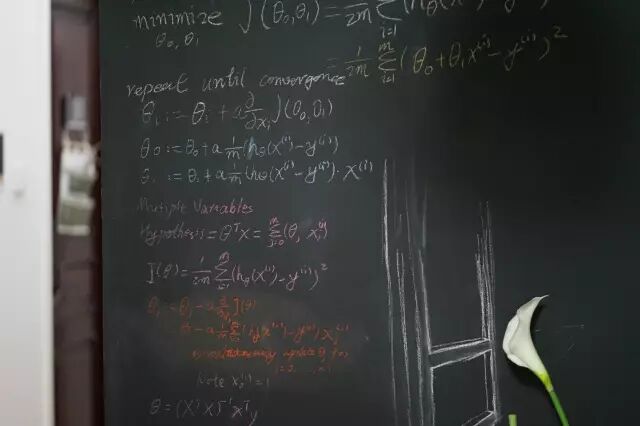 minimize J(θ₀,θ₁) = 1/2m Σ(hθ(x⁽ⁱ⁾) - y⁽ⁱ⁾)²
θ₀, θ₁
= 1/2m Σᵢ₌₁ᵐ (θ₀ + θ₁x⁽ⁱ⁾ - y⁽ⁱ⁾)²
repeat until convergence
θᵢ := θᵢ + a ∂/∂xᵢ J(θ₀,θ₁)
θ₀ := θ₀ + a 1/m (hθ(x⁽ⁱ⁾ - y⁽ⁱ⁾)
θ₁ := θ₁ + a 1/m (hθ(x⁽ⁱ⁾ - y⁽ⁱ⁾) · x⁽ⁱ⁾
Multiple Variables
Hypothesis = θᵀx = Σⱼ₌₀ᵐ (θⱼ xⱼ⁽ⁱ⁾)
J(θ) = 1/2m Σᵢ₌₁ᵐ (hθ(x⁽ⁱ⁾) - y⁽ⁱ⁾)²
θⱼ := θⱼ - a ∂/∂θⱼ J(θ)
- a 1/m Σ (hθ(x⁽ⁱ⁾) - y⁽ⁱ⁾) xⱼ⁽ⁱ⁾
simultaneously update θⱼ for
Note x₀⁽ⁱ⁾ = 1
θ = (XᵀX)⁻¹Xᵀy